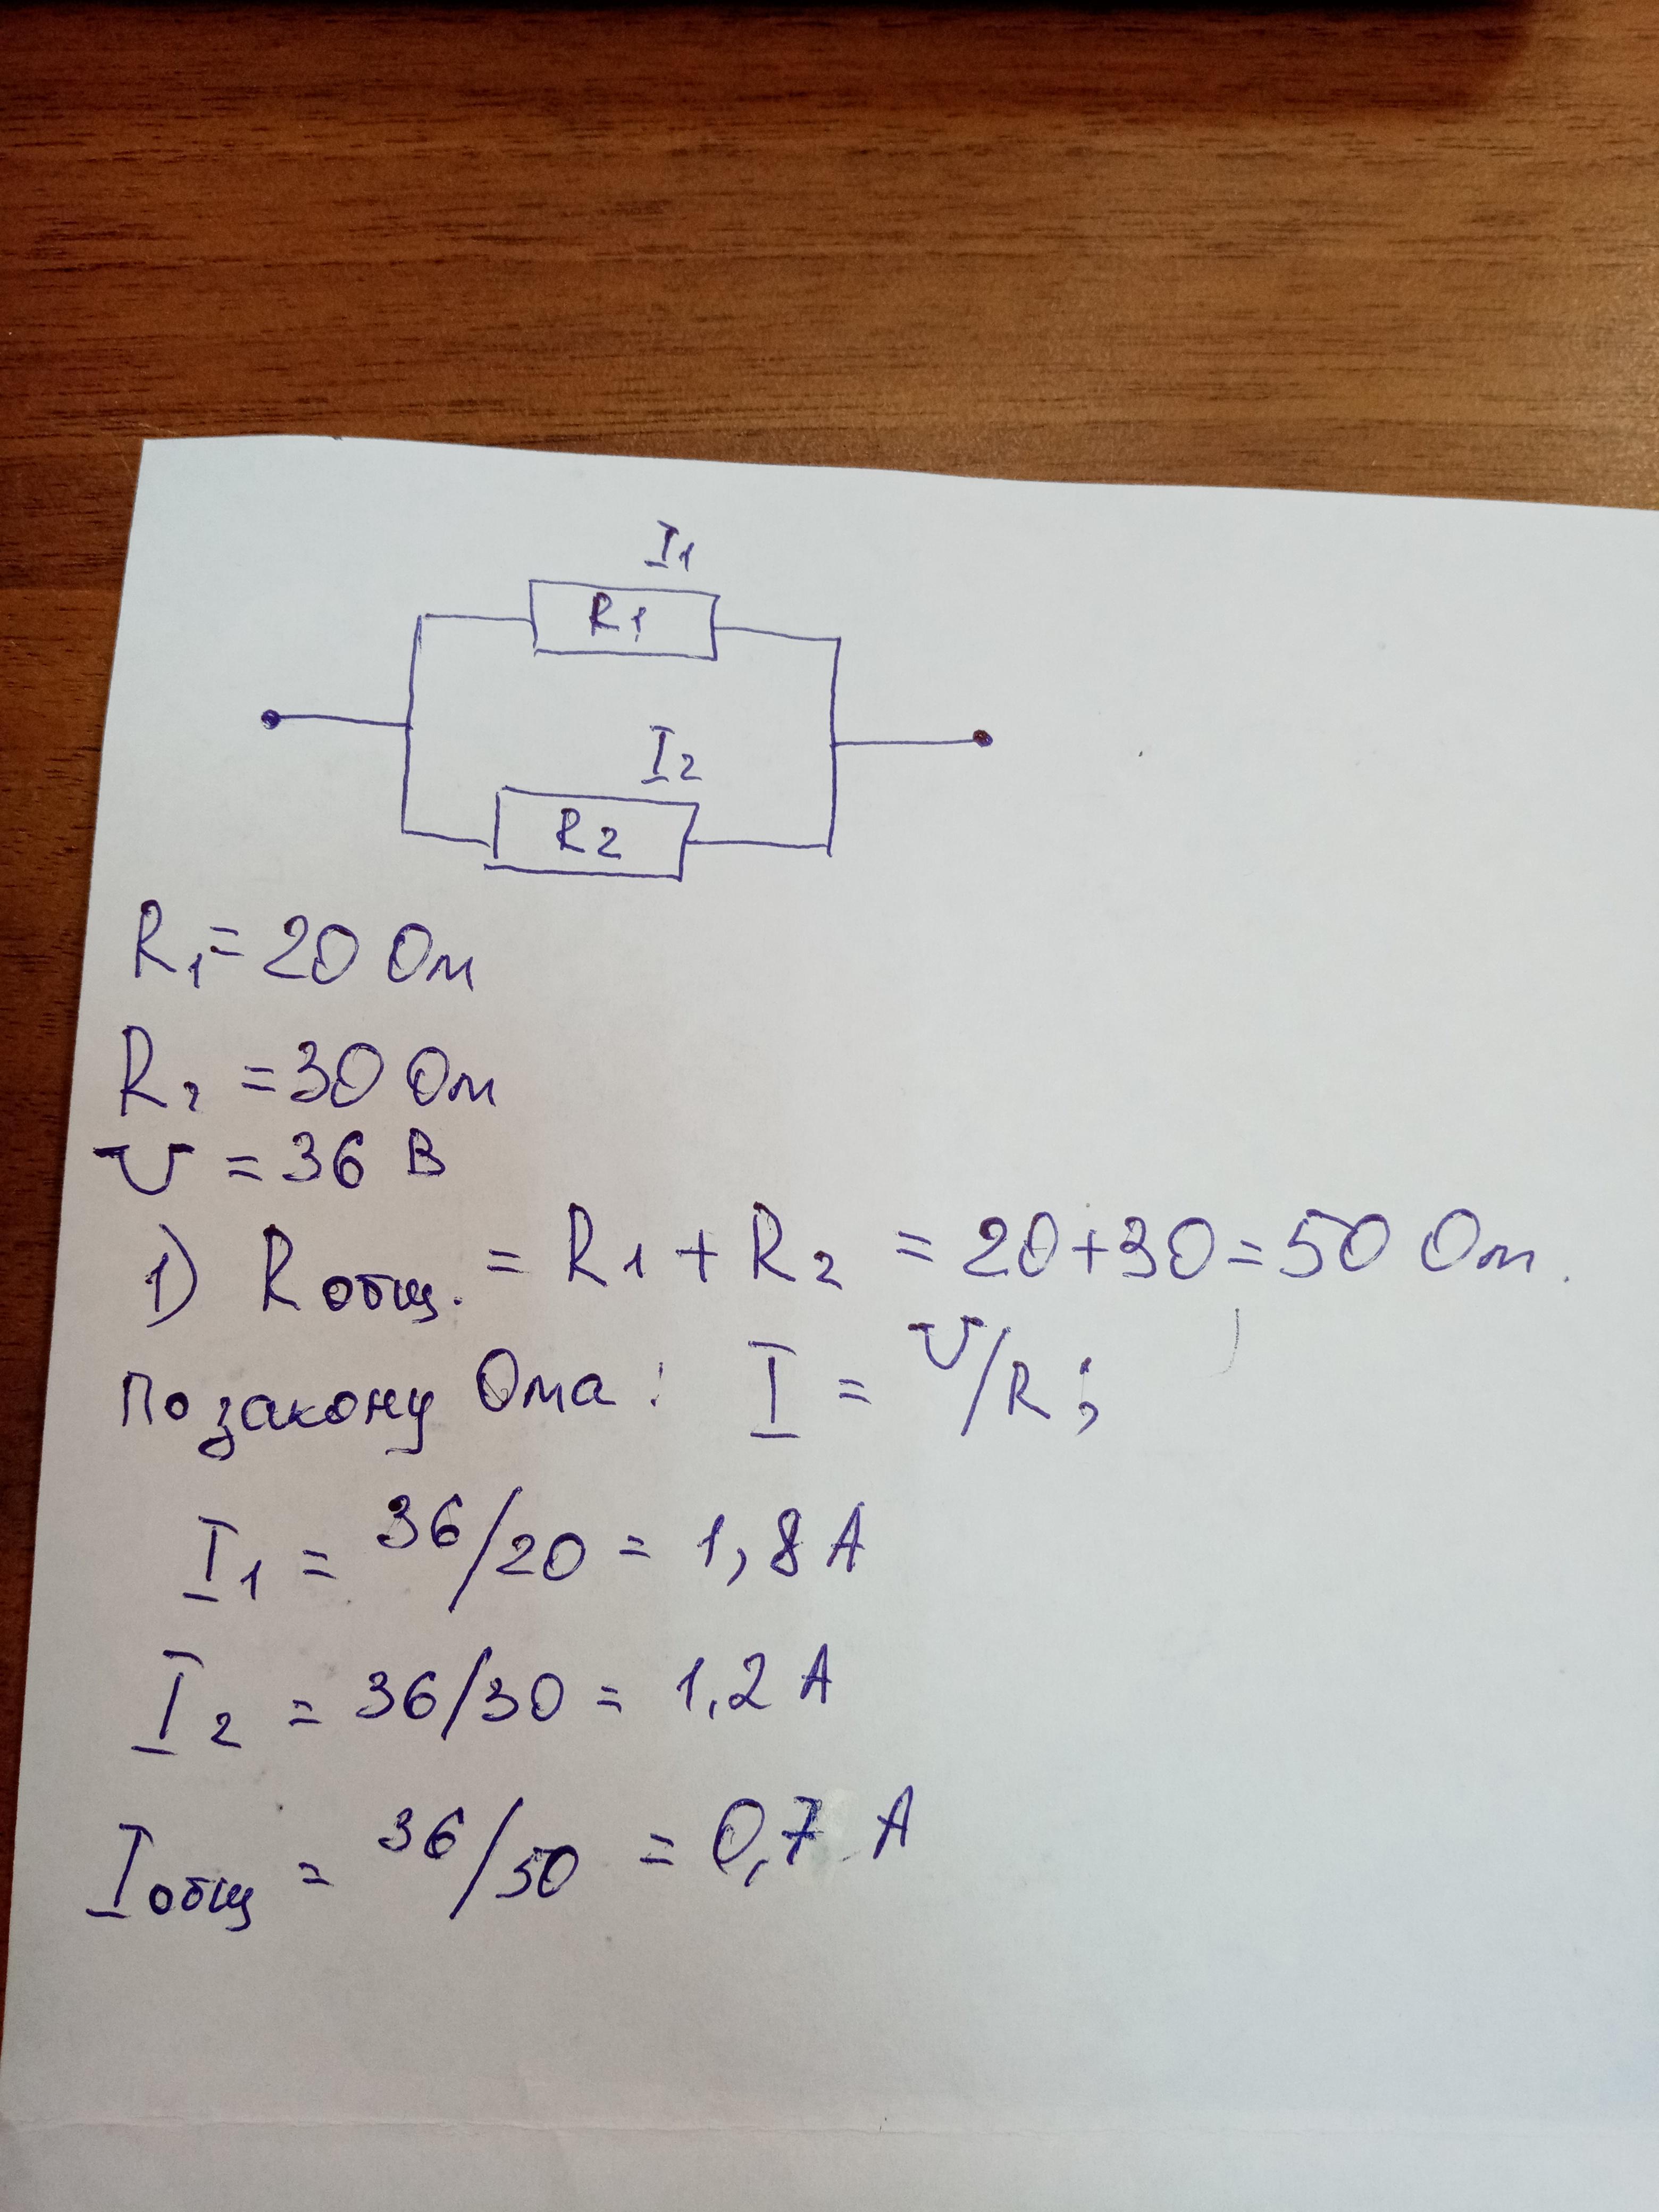 I1
R1
I2
R2
R1 = 20 Ом
R2 = 30 Ом
U = 36 В
1) Rобщ. = R1 + R2 = 20+30=50 Ом.
По закону Ома: I = U/R;
I1 = 36/20 = 1,8 А
I2 = 36/30 = 1.2 А
Iобщ = 36/50 = 0,7 А